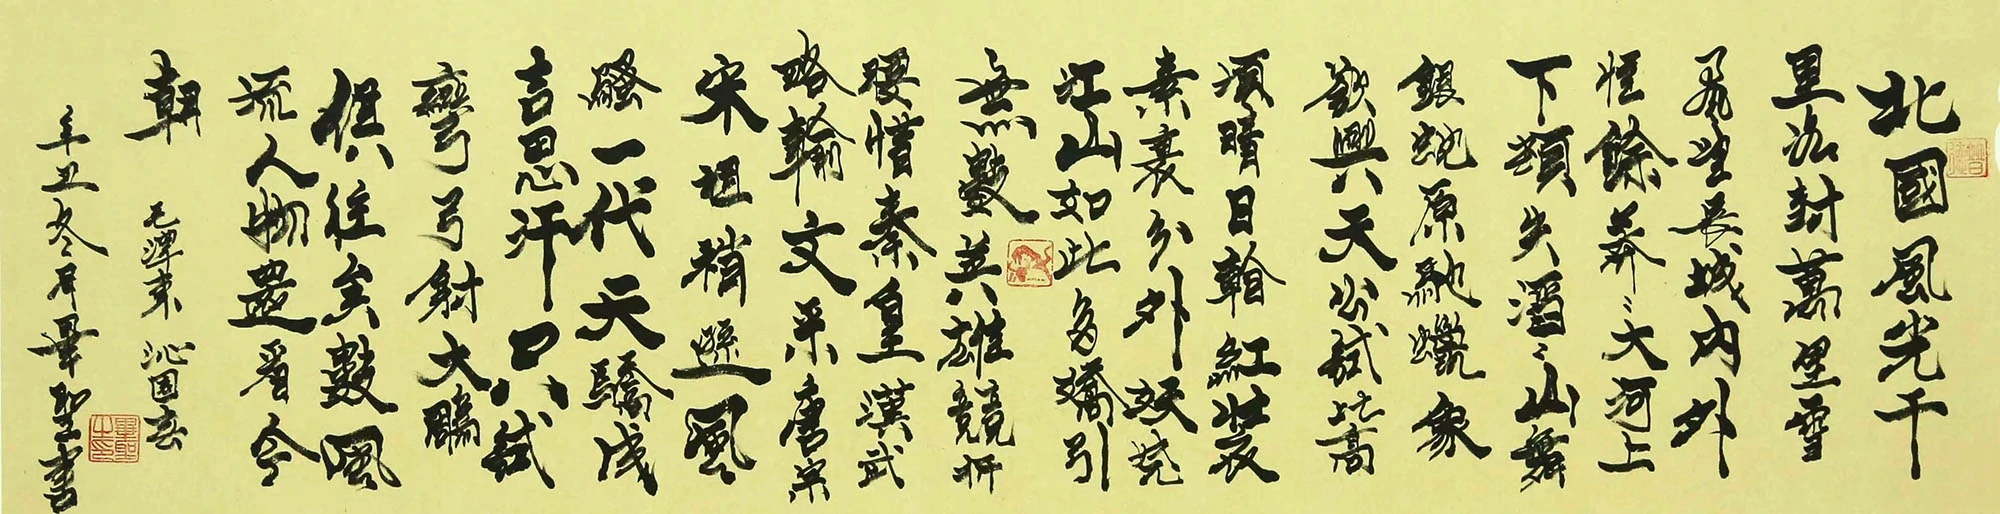 北國風光千
里冰封萬里雪
飛望長城內外
惟餘莽〻大河上
下頓失滔〻山舞
銀蛇原馳蠟象
欲與天公試比高
須晴日看紅裝
素裹分外妖嬈
江山如此多嬌引
無數英雄競折
腰惜秦皇漢武
略輸文采唐宗
宋祖稍遜風
騷一代天驕成
吉思汗只識
彎弓射大鵰
俱往矣數風
流人物還看今
朝 毛澤東 沁园春
辛丑冬月畢聖書
畢聖之印